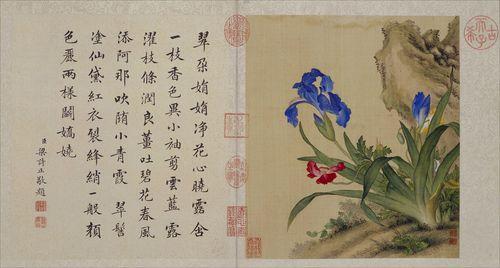 古希天子
翠朵娟娟淨花心曉露含
一枝香色異小袖剪雲藍 露
濯枝條潤良薑吐碧花春風
添阿那吹小青霞 翠髻
塗仙黛紅衣裂絳綃一般顏
色麗兩樣鬬嬌嬈
臣梁詩正敬題